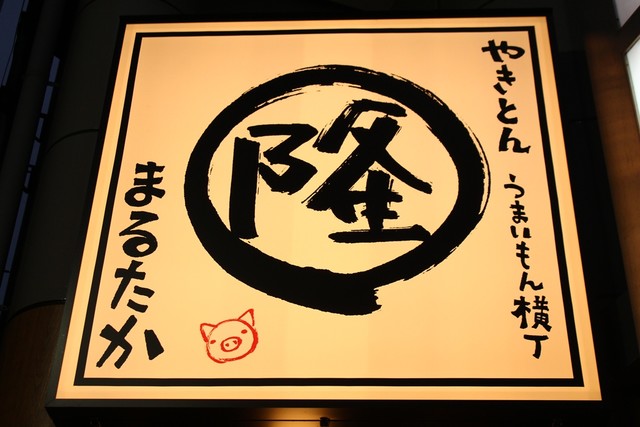 やきとん
うまいもん横丁
隆
まるたか